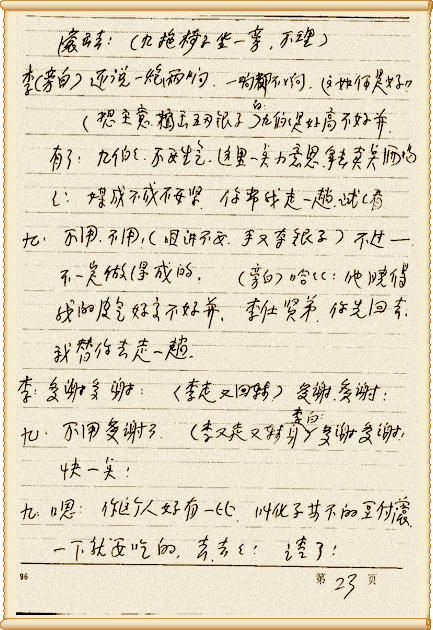 (九拖椅子坐一旁，不理)
李(旁白)还说一炮两响，一响都不响，这如何是好
(想主意，摸出三两银子)九伯伯是好高不好矮
有了：九伯ㄑ，不要生气，这里一点小意思，拿去买点酒喝
ㄑ：媒成不成不要紧，你帮我走一趟，试ㄑ看
九：不用，不用，(口讲不要，手又拿银子)不过一
不一定做得成的。(旁白)哈ㄑㄑ：他晓得
我的皮气好高不好矮，李仕贤弟，你先回去，
我替你去走一趟。
李：多谢多谢：(李走又回转)多谢，多谢！
九：不用多谢了，(李又走又转身)李白：多谢多谢！
快一点！
九：嗯：你这个人好有一比，叫化子
一下就要吃的，去，去ㄑ：
96
第 23 页